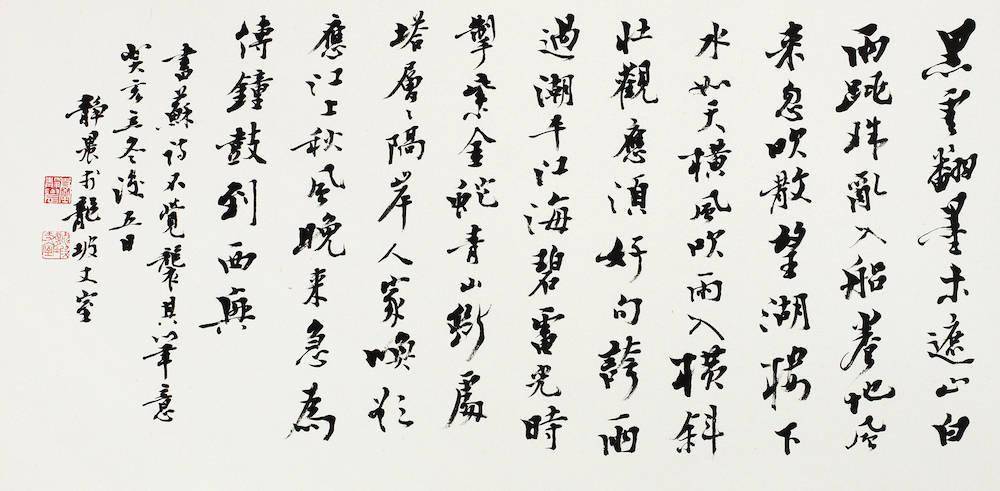 黑雲翻墨未遮山白
雨跳珠亂入船卷地風
來忽吹散望湖樓下
水如天橫風吹雨入樓斜
壯觀應須好句誇雨
過潮平江海碧電光時
掣紫金蛇青山斷處
塔層〻隔岸人家喚欲
應江上秋風晚來急為
傳鐘鼓到西興
書蘇詩不覺襲其筆意
癸亥立冬後五日
靜農於龍坡丈室